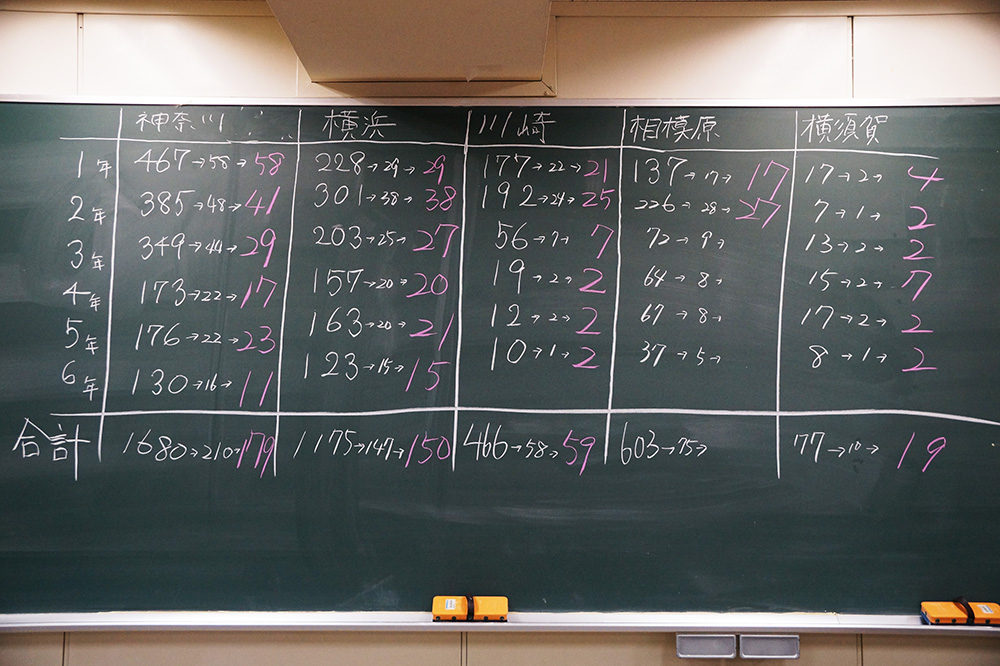 神奈川 横浜 川崎 相模原 横須賀
1年 467→58→58 228→29→29 177→22→21 137→17→17 17→2→4
2年 385→48→41 301→38→38 192→24→25 226→28→27 7→1→2
3年 349→44→29 203→25→27 56→7→7 72→9→ 13→2→2
4年 173→22→17 157→20→20 19→2→2 64→8→ 15→2→7
5年 176→22→23 163→20→21 12→2→2 67→8→ 17→2→2
6年 130→16→11 123→15→15 10→1→2 37→5→ 8→1→2
合計 1680→210→179 1175→147→150 466→58→59 603→75→ 77→10→19